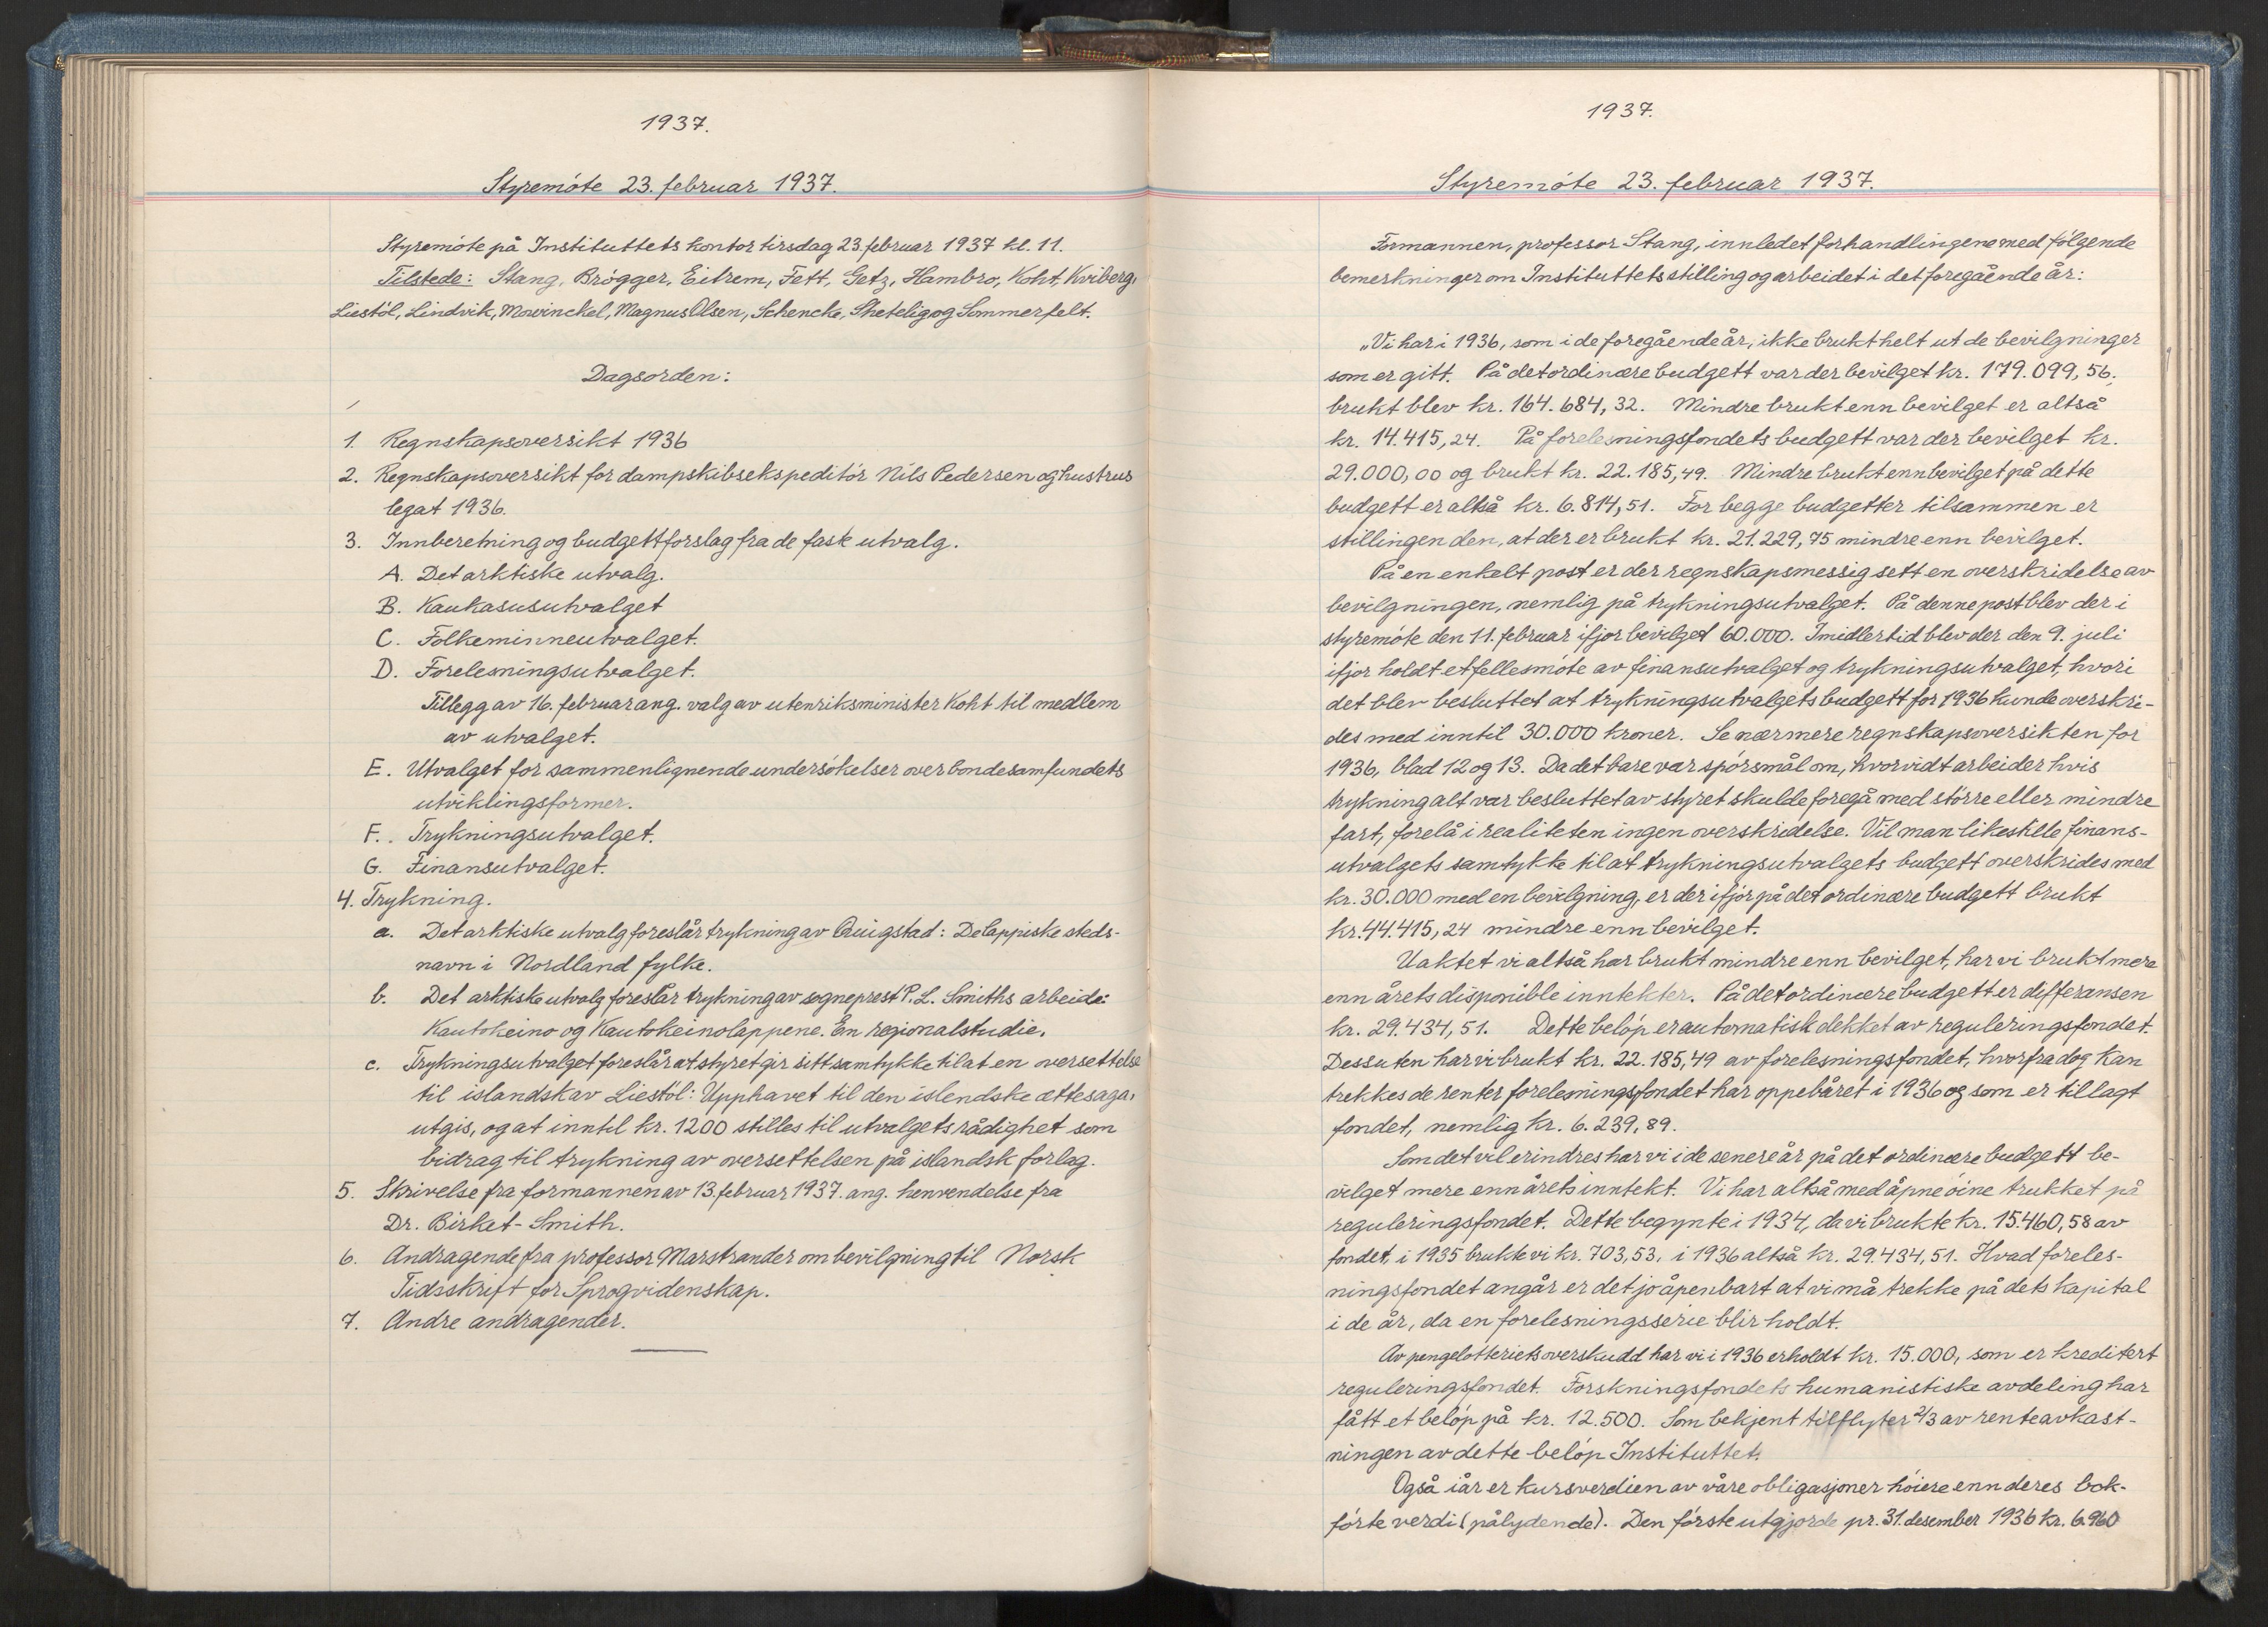 1937.
Styremóte 23. februar 1937.
Styremóte på Instituttets kontor tirsdag 23. februar 1937 kl. 11.
Tilstede: Stang, Brógger, Eitrem, Fett, Getz, Hambro, Koht, Kviberg,
Liestól, Lindvik, Mowinckel, Magnus Olsen, Schencke, Shetelig og Sommerfelt.
Dagsorden:
1. Regnskapsoversikt 1936
2. Regnskapsoversikt for dampskibsekspeditór Nils Pedersen og hustrus
legat 1936.
3. Innberetning og budgettforslag fra de faste utvalg.
A. Det arktiske utvalg.
B. Kaukasusutvalget
C. Folkeminneutvalget.
D. Forelesningsutvalget.
Tillegg av 16. februar ang. valg av utenriksminister Koht til medlem
av utvalget.
E. Utvalget for sammenlignende undersókelser over bondesamfundets
utviklingsformer.
F. Trykningsutvalget.
G. Finansutvalget.
4. Trykning.
a. Det arktiske utvalg foreslår trykning av Quigstad: De lappiske steds-
navn i Nordland fylke.
b. Det arktiske utvalg foreslår trykning av sogneprest P. L. Smiths arbeide:
Kautokeino og Kautokeinolappene. En regionalstudie.
c. Trykningsutvalget foreslår at styret gir sitt samtykke til at en oversettelse
til islandsk av Liestól: Upphavet til den islendske ættesaga,
utgis, og at inntil kr. 1200 stilles til utvalgets rådighet som
bidrag til trykning av oversettelsen på islandsk forlag.
5. Skrivelse fra formannen av 13. februar 1937. ang. henvendelse fra
Dr. Birket-Smith.
6. Andragende fra professor Marstrander om bevilgning til Norsk
Tidsskrift for Sprogvidenskap.
7. Andre andragender.
1937.
Styremóte 23. februar 1937.
Formannen, professor Stang, innledet forhandlingene med fólgende
bemerkninger om Instituttets stilling og arbeidet i det foregående år:
„Vi har i 1936, som i de foregående år, ikke brukt helt ut de bevilgninger
som er gitt. På det ordinære budgett var der bevilget kr. 179.099,56,
brukt blev kr. 164.684,32. Mindre brukt enn bevilget er altså
kr. 14.415,24. På forelesningsfondets budgett var der bevilget kr.
29.000,00 og brukt kr. 22.185,49. Mindre brukt enn bevilget på dette
budgett er altså kr. 6.814,51. For begge budgetter tilsammen er
stillingen den, at der er brukt kr. 21.229,75 mindre enn bevilget.
På en enkelt post er der regnskapsmessig sett en overskridelse av
bevilgningen, nemlig på trykningsutvalget. På denne post blev der i
styremóte den 11. februar ifjor bevilget 60.000. Imidlertid blev der den 9. juli
ifjor holdt et fellesmóte av finansutvalget og trykningsutvalget, hvori
det blev besluttet at trykningsutvalgets budgett for 1936 kunde overskri-
des med inntil 30.000 kroner. Se nærmere regnskapsoversikten for
1936, blad 12 og 13. Da det bare var spórsmål om, hvorvidt arbeider hvis
trykning alt var besluttet av styret skulde foregå med stórre eller mindre
fart, forelå i realiteten ingen overskridelse. Vil man likestille finans-
utvalgets samtykke til at trykningsutvalgets budgett overskrides med
kr. 30.000 med en bevilgning, er der ifjor på det ordinære budgett brukt
kr. 44.415,24 mindre enn bevilget.
Uaktet vi altså har brukt mindre enn bevilget, har vi brukt mere
enn årets disponible inntekter. På det ordinære budgett er differansen
kr. 29.434,51. Dette belóp er automatisk dekket av reguleringsfondet.
Dessuten har vi brukt kr. 22.185,49 av forelesningsfondet, hvorfra dog kan
trekkes de renter forelesningsfondet har oppebåret i 1936 og som er tillagt
fondet, nemlig kr. 6.239,89.
Som det vil erindres har vi i de senere år på det ordinære budgett be-
vilget mere enn årets inntekt. Vi har altså med åpne óine trukket på
reguleringsfondet. Dette begynte i 1934, da vi brukte kr. 15.460,58 av
fondet, i 1935 brukte vi kr. 703,53, i 1936 altså kr. 29.434,51. Hvad foreles-
ningsfondet angår er det jo åpenbart at vi må trekke på dets kapital
i de år, da en forelesningsserie blir holdt.
Av pengelotteriets overskudd har vi i 1936 erholdt kr. 15.000, som er kreditert
reguleringsfondet. Forskningsfondets humanistiske avdeling har
fått et belóp på kr. 12.500. Som bekjent tilflyter 2/3 av renteavkast-
ningen av dette belóp Instituttet.
Også iår er kursverdien av våre obligasjoner hóiere enn deres bok-
fórte verdi (pålydende). Den fórste utgjorde pr. 31. desember 1936 kr. 6.960